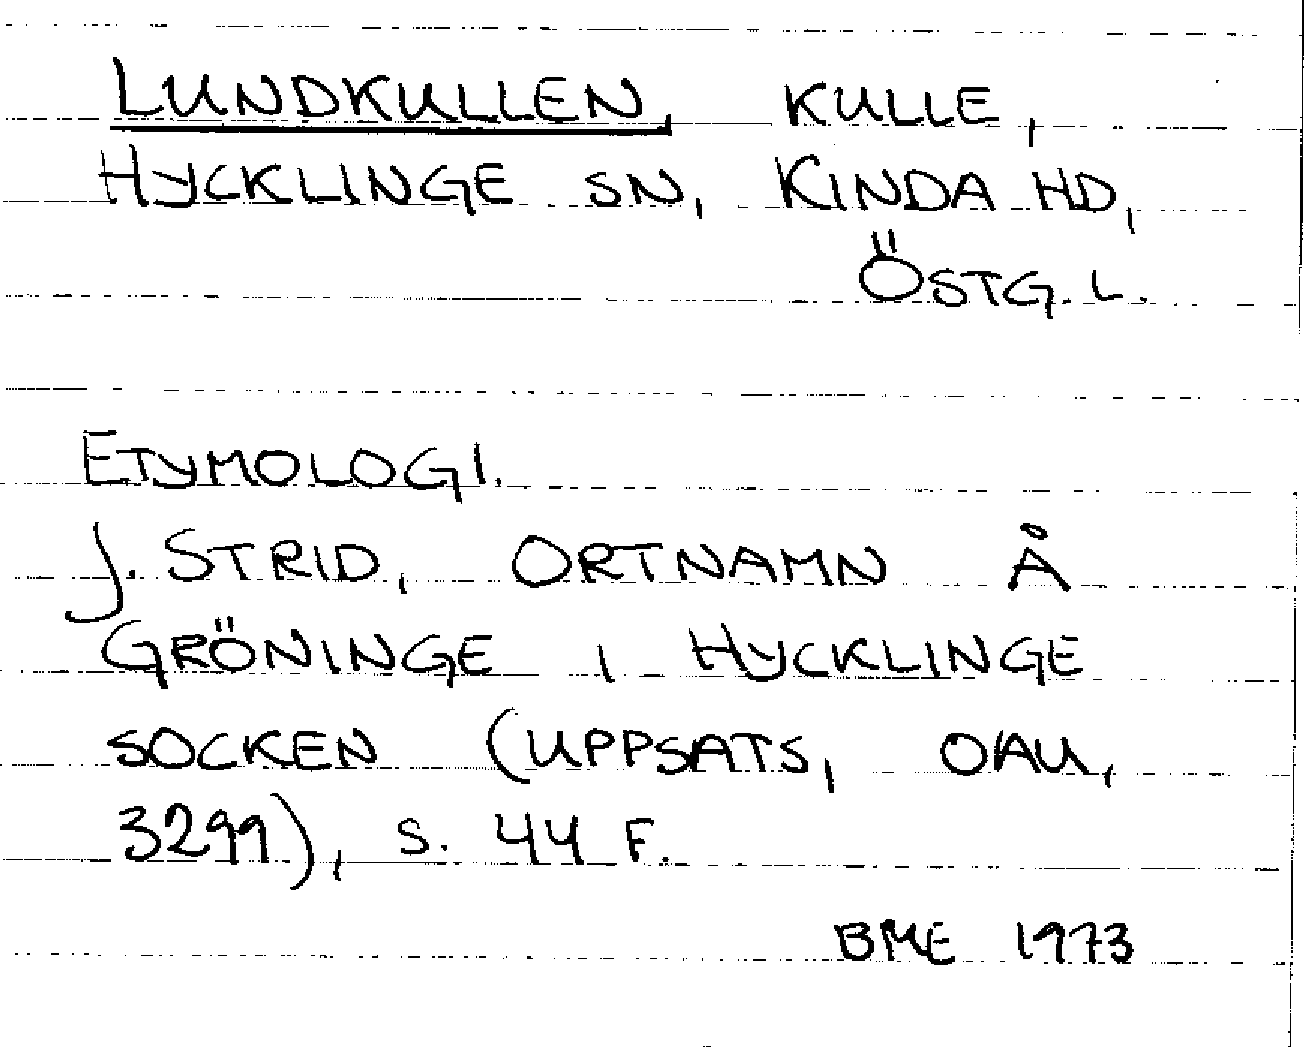 LUNDKULLEN, KULLE,
HYCKLINGE SN, KINDA HD,
ÖSTG. L.
ETYMOLOGI.
J. STRID, ORTNAMN Å
GRÖNINGE I HYCKLINGE
SOCKEN (UPPSATS, OAU,
3299), S. 44 F.
BME 1973